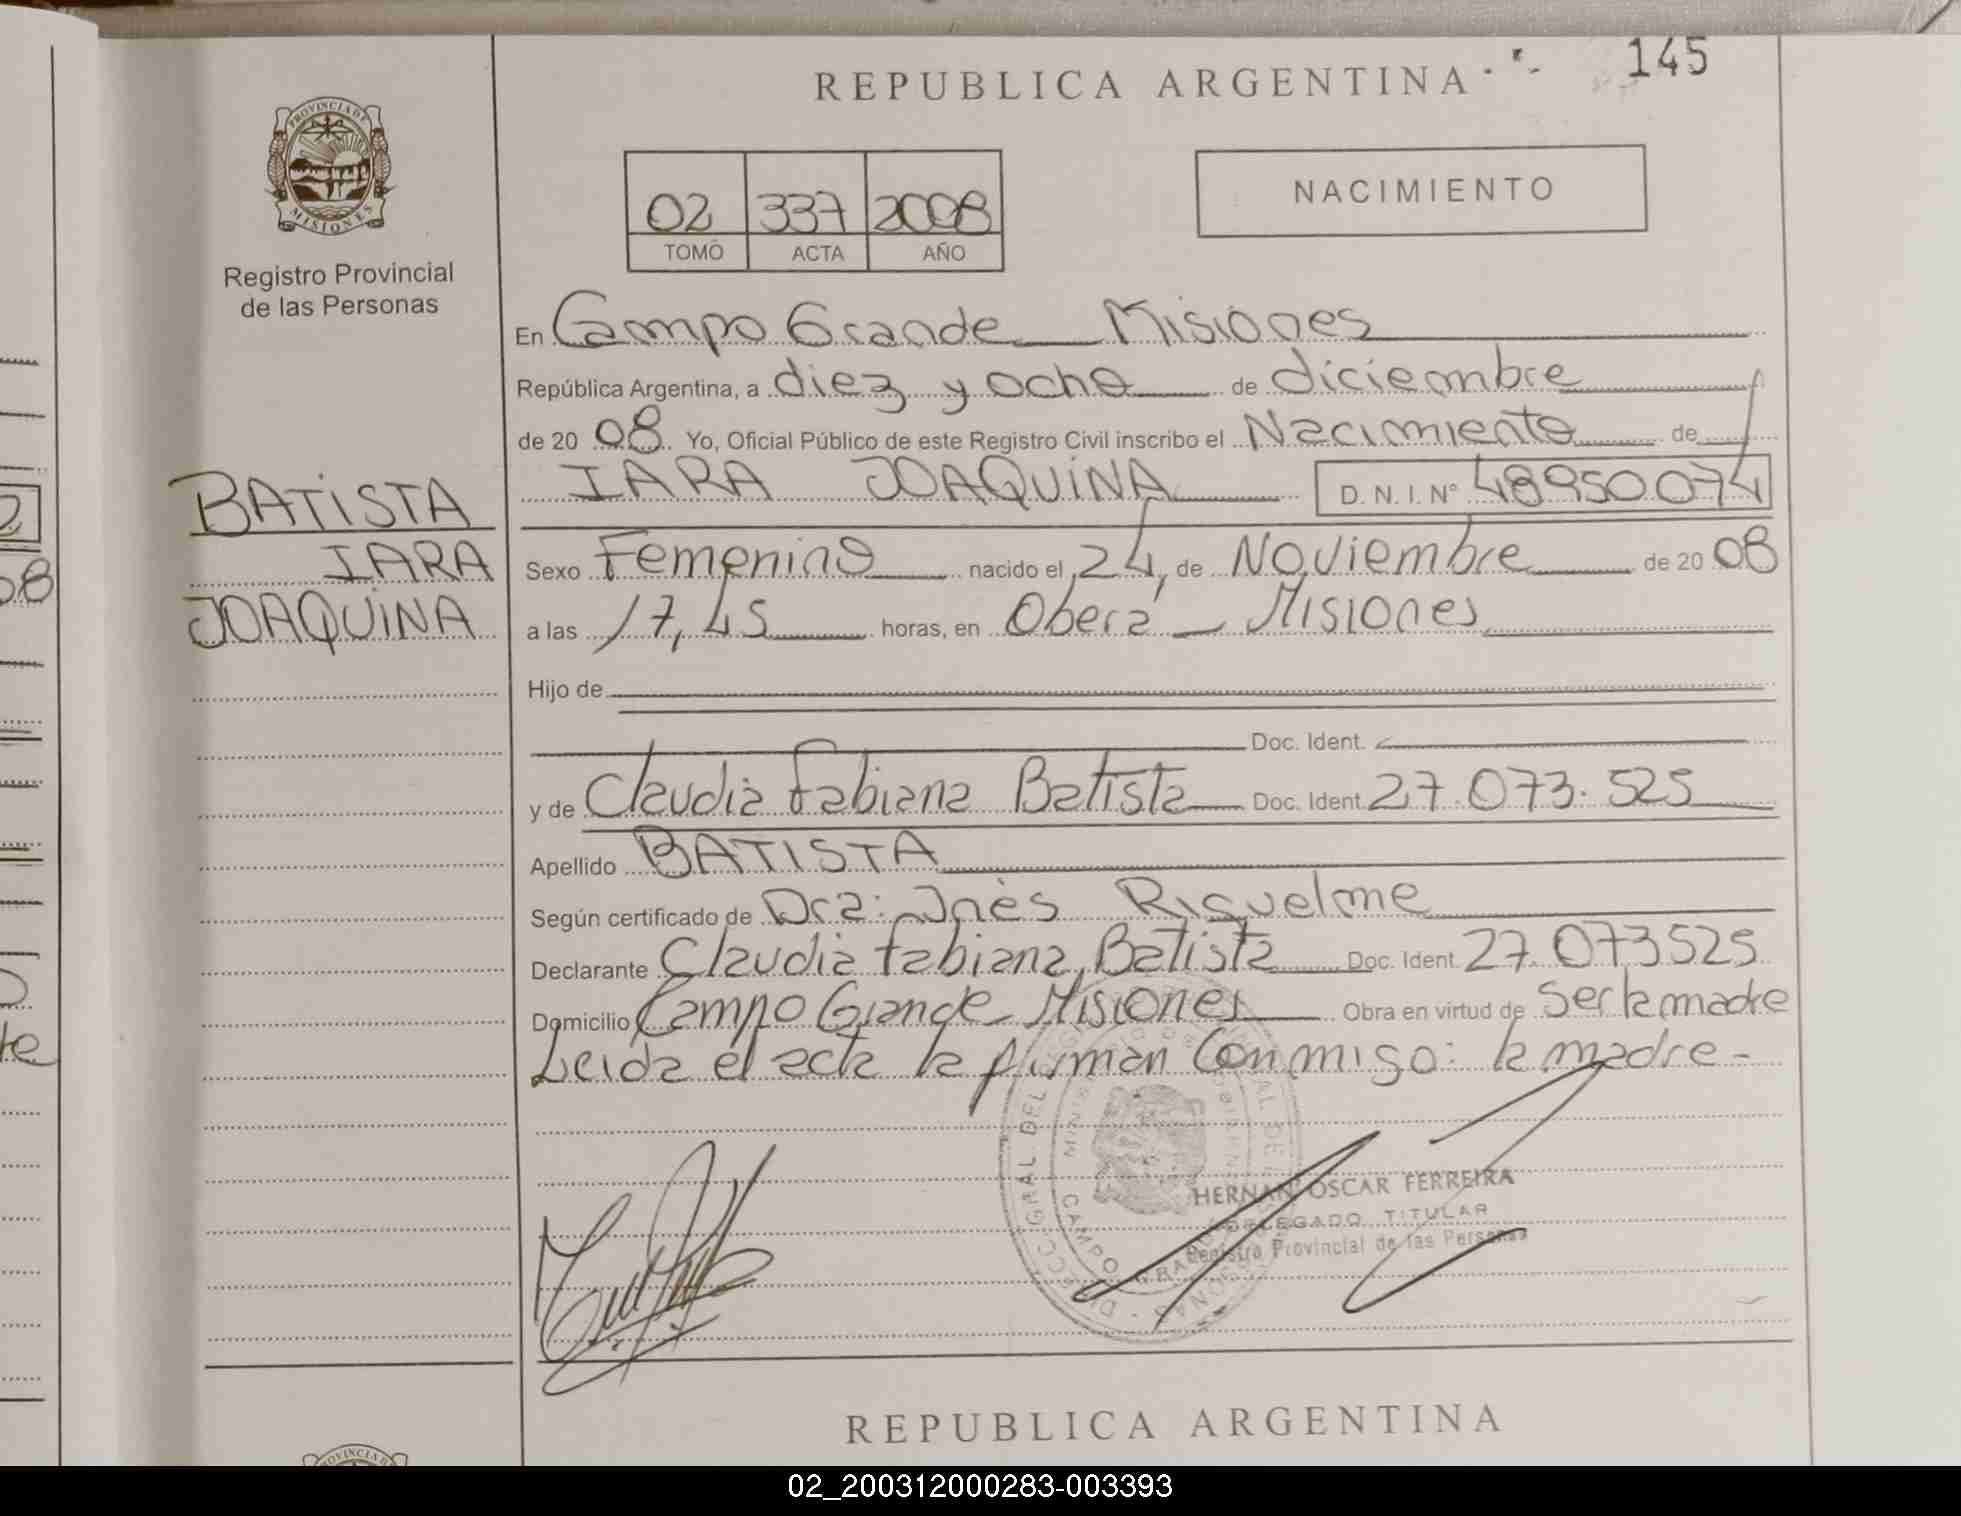 145
REPUBLICA ARGENTINA
PROVINCIA DE
MISIONES
Registro Provincial
de las Personas
02 337 2008
TOMO ACTA AÑO
NACIMIENTO
En Campo Grande Misiones
República Argentina, a diez y ocho de diciembre
de 20 08 Yo, Oficial Público de este Registro Civil inscribo el Nacimiento de
IARA JOAQUINA D. N. I. Nº 48950074
BATISTA
IARA
JOAQUINA
Sexo Femenino nacido el 24, de Noviembre de 20 08
a las 17,45 horas, en Oberá - Misiones
Hijo de
Doc. Ident.
y de Claudia Fabiana Batista Doc. Ident 27.073.525
Apellido BATISTA
Según certificado de Dra: Inès Riquelme
Declarante Claudia Fabiana, Batista Doc. Ident 27.073525
Domicilio Campo Grande - Misiones Obra en virtud de ser la madre
Leida el acta la firman Conmigo: la madre -
HERNAN OSCAR FERREIRA
DELEGADO TITULAR
Registro Provincial de las Personas
REPUBLICA ARGENTINA
02_200312000283-003393